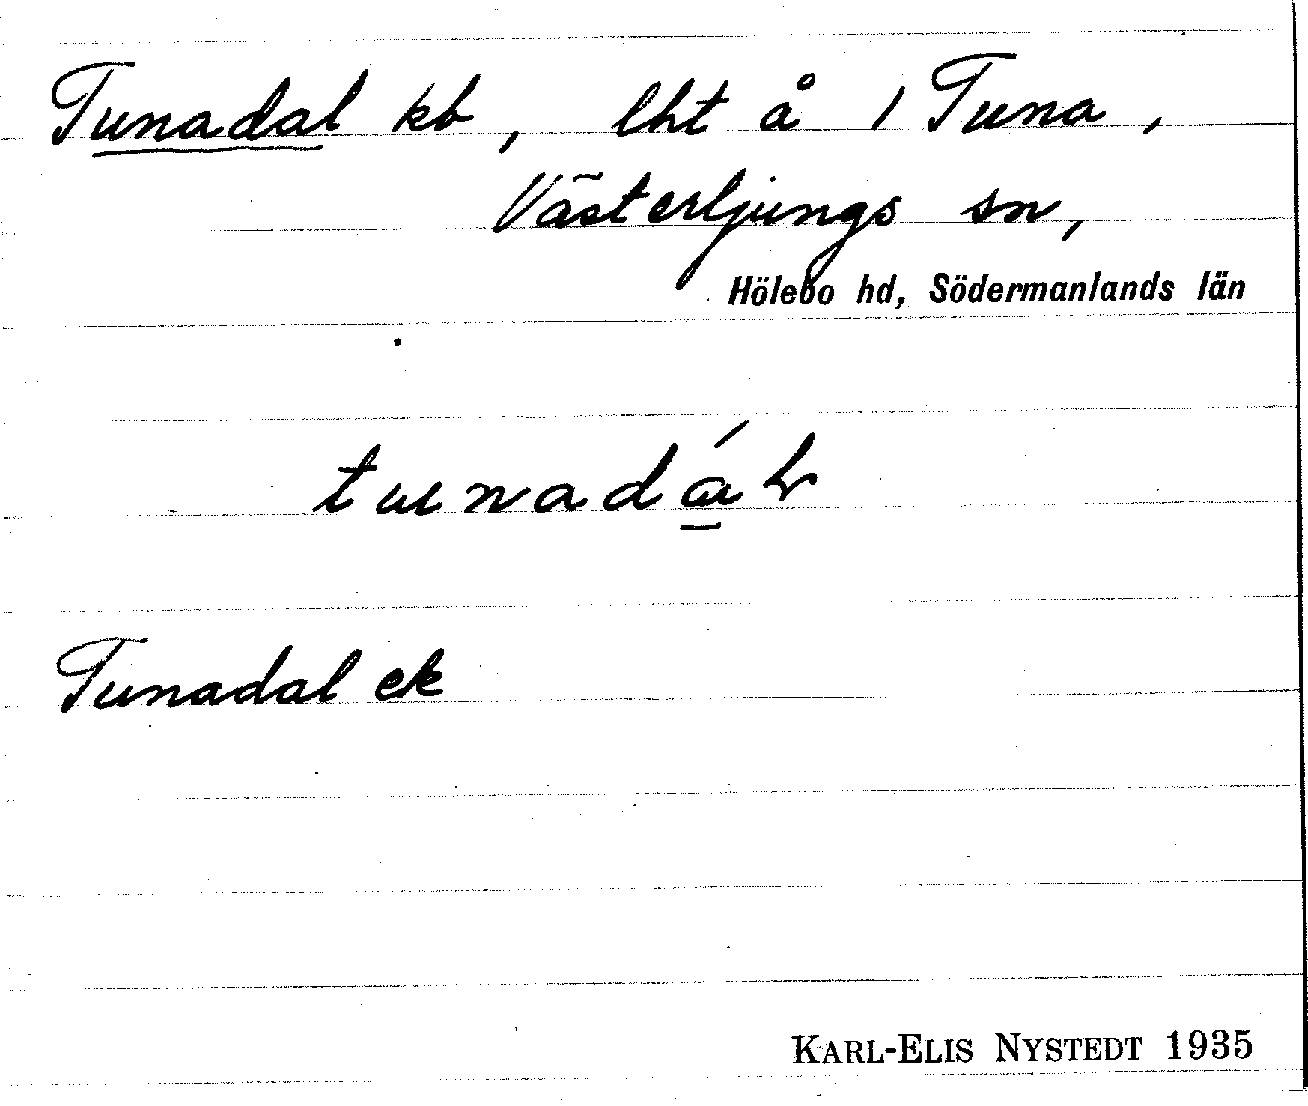 Tunadal kb, lht å 1 Tuna,
Västerljungs sn,
Hölebo hd, Södermanlands län
tunadál
Tunadal ek
KARL-ELIS NYSTEDT 1935